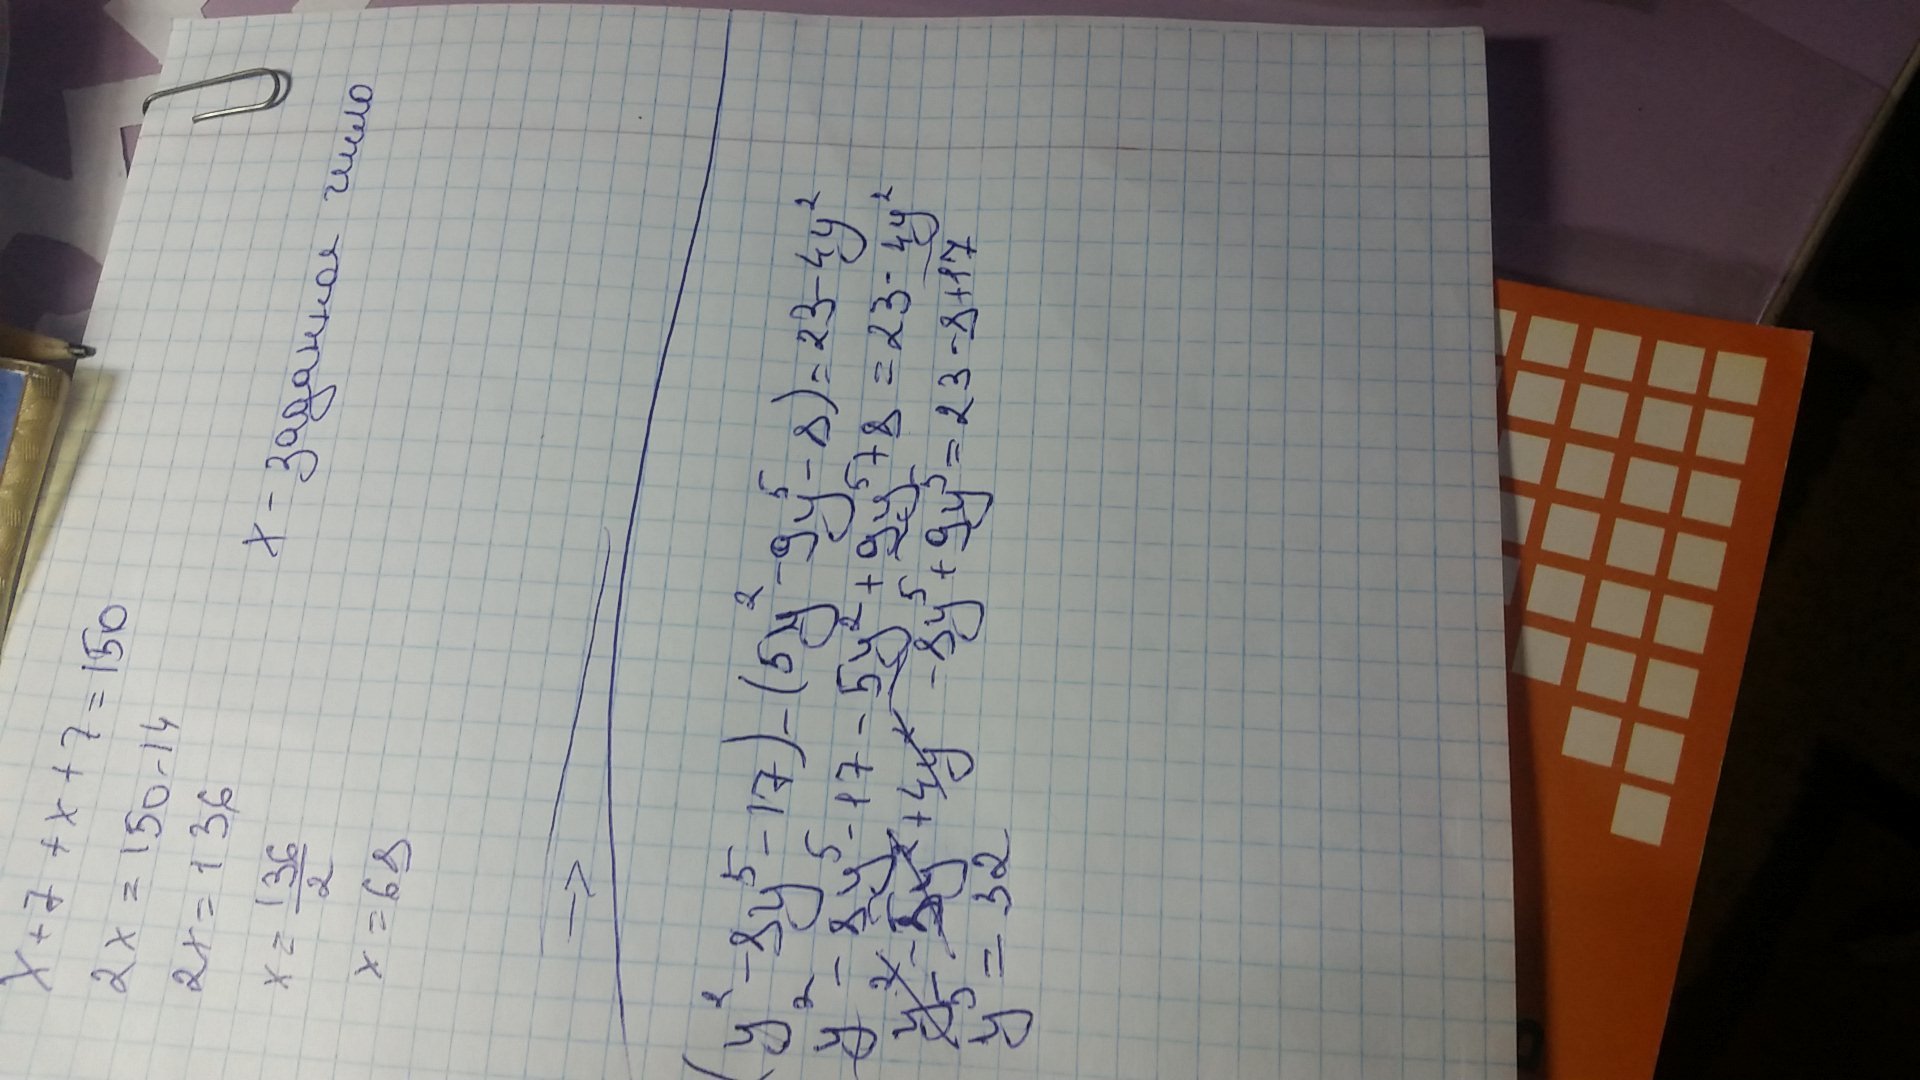 x+7+x+7=150
2x=150-14
2x=136
x=136/2
x=68
x - заданное число
→
(y²-8y⁵-17)-(5y²-9y⁵-8)=23-4y²
y²-8y⁵-17-5y²+9y⁵+8=23-4y²
y²-5y²+4y²-8y⁵+9y⁵=23-8+17
y⁵=32